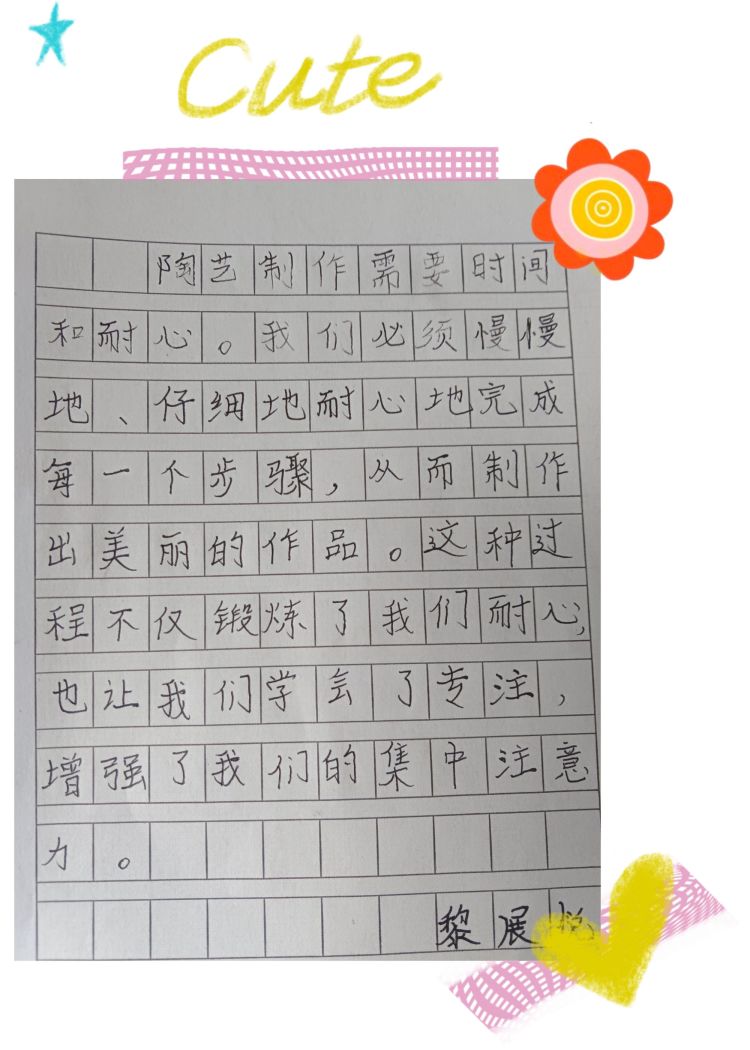 Cute
陶艺制作需要时间
和耐心。我们必须慢慢
地、仔细地耐心地完成
每一个步骤，从而制作
出美丽的作品。这种过
程不仅锻炼了我们耐心，
也让我们学会了专注，
增强了我们的集中注意
力。
黎展